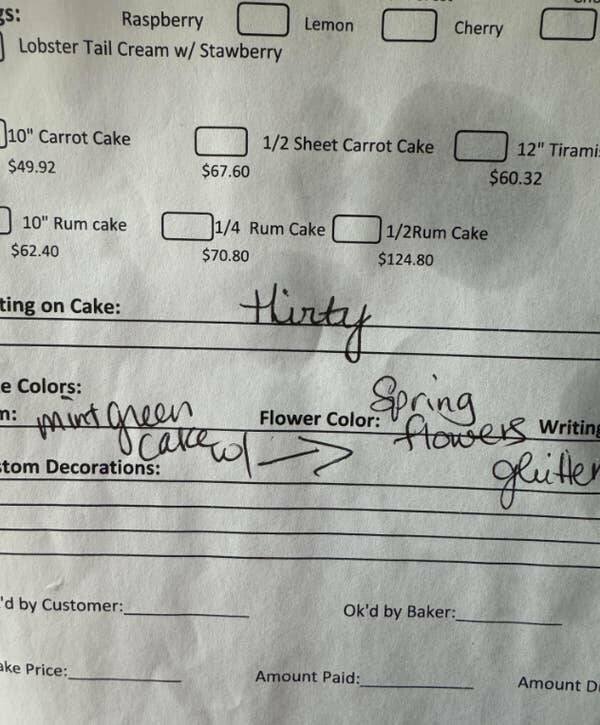 gs: Raspberry Lemon Cherry
Lobster Tail Cream w/ Stawberry
10" Carrot Cake 1/2 Sheet Carrot Cake 12" Tiramis
$49.92 $67.60 $60.32
10" Rum cake 1/4 Rum Cake 1/2Rum Cake
$62.40 $70.80 $124.80
ting on Cake: thirty
e Colors:
m: mint green Flower Color: Spring flowers Writing
cake w/ → glitter
stom Decorations:
'd by Customer: Ok'd by Baker:
ake Price: Amount Paid: Amount D